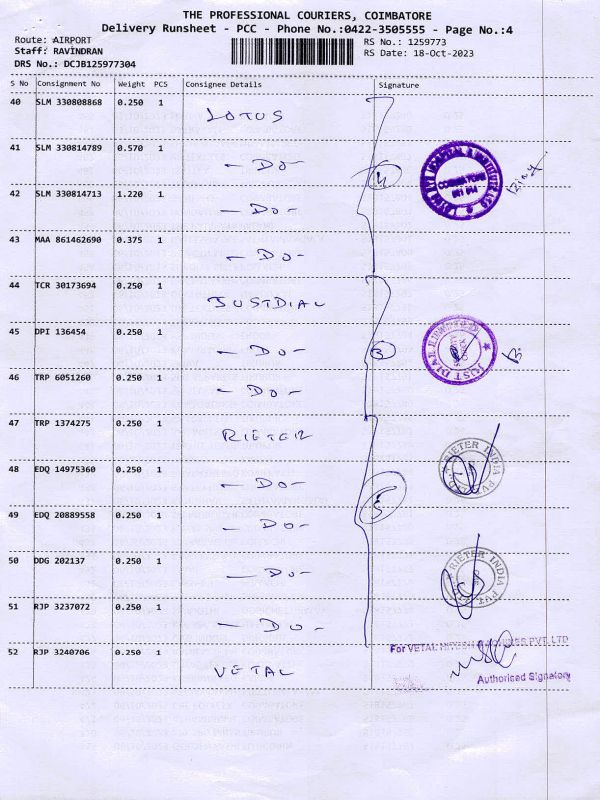 THE PROFESSIONAL COURIERS, COIMBATORE
Delivery Runsheet - PCC - Phone No.:0422-3505555 - Page No.:4
Route: AIRPORT
RS No.: 1259773
Staff: RAVINDRAN
RS Date: 18-Oct-2023
DRS No.: DCJB125977304
S No Consignment No Weight PCS Consignee Details Signature
40 SLM 330808868 0.250 1 LOTUS
41 SLM 330814789 0.570 1 - DO -
42 SLM 330814713 1.220 1 - DO -
4
43 MAA 861462690 0.375 1 - DO -
44 TCR 30173694 0.250 1 JUSTDIAL
45 DPI 136454 0.250 1 - DO - 3
46 TRP 6051260 0.250 1 - DO -
47 TRP 1374275 0.250 1 RIETER
RIETER INDIA PVT
48 EDQ 14975360 0.250 1 - DO -
5
49 EDQ 20889558 0.250 1 - DO -
50 DDG 202137 0.250 1 - DO -
RIETER INDIA PVT
51 RJP 3237072 0.250 1 - DO -
For VETAL PVT LTD
52 RJP 3240706 0.250 1 VETAL
Authorised Signatory